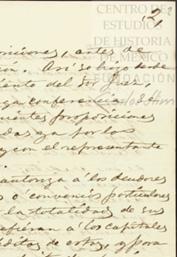 CENTRO DE
ESTUDIOS
DE HISTORIA
DE MÉXICO
FUNDACIÓN
2,
siciones, antes de
Así se hizo desde
iento del Sor Juez,
ga conferencia
uientes proposiciones
das ya por los
y con el representante
autoriza á los deudores
ó convenios particulares
la totalidad de sus
refieran á los capitales
ditos de estos, y para